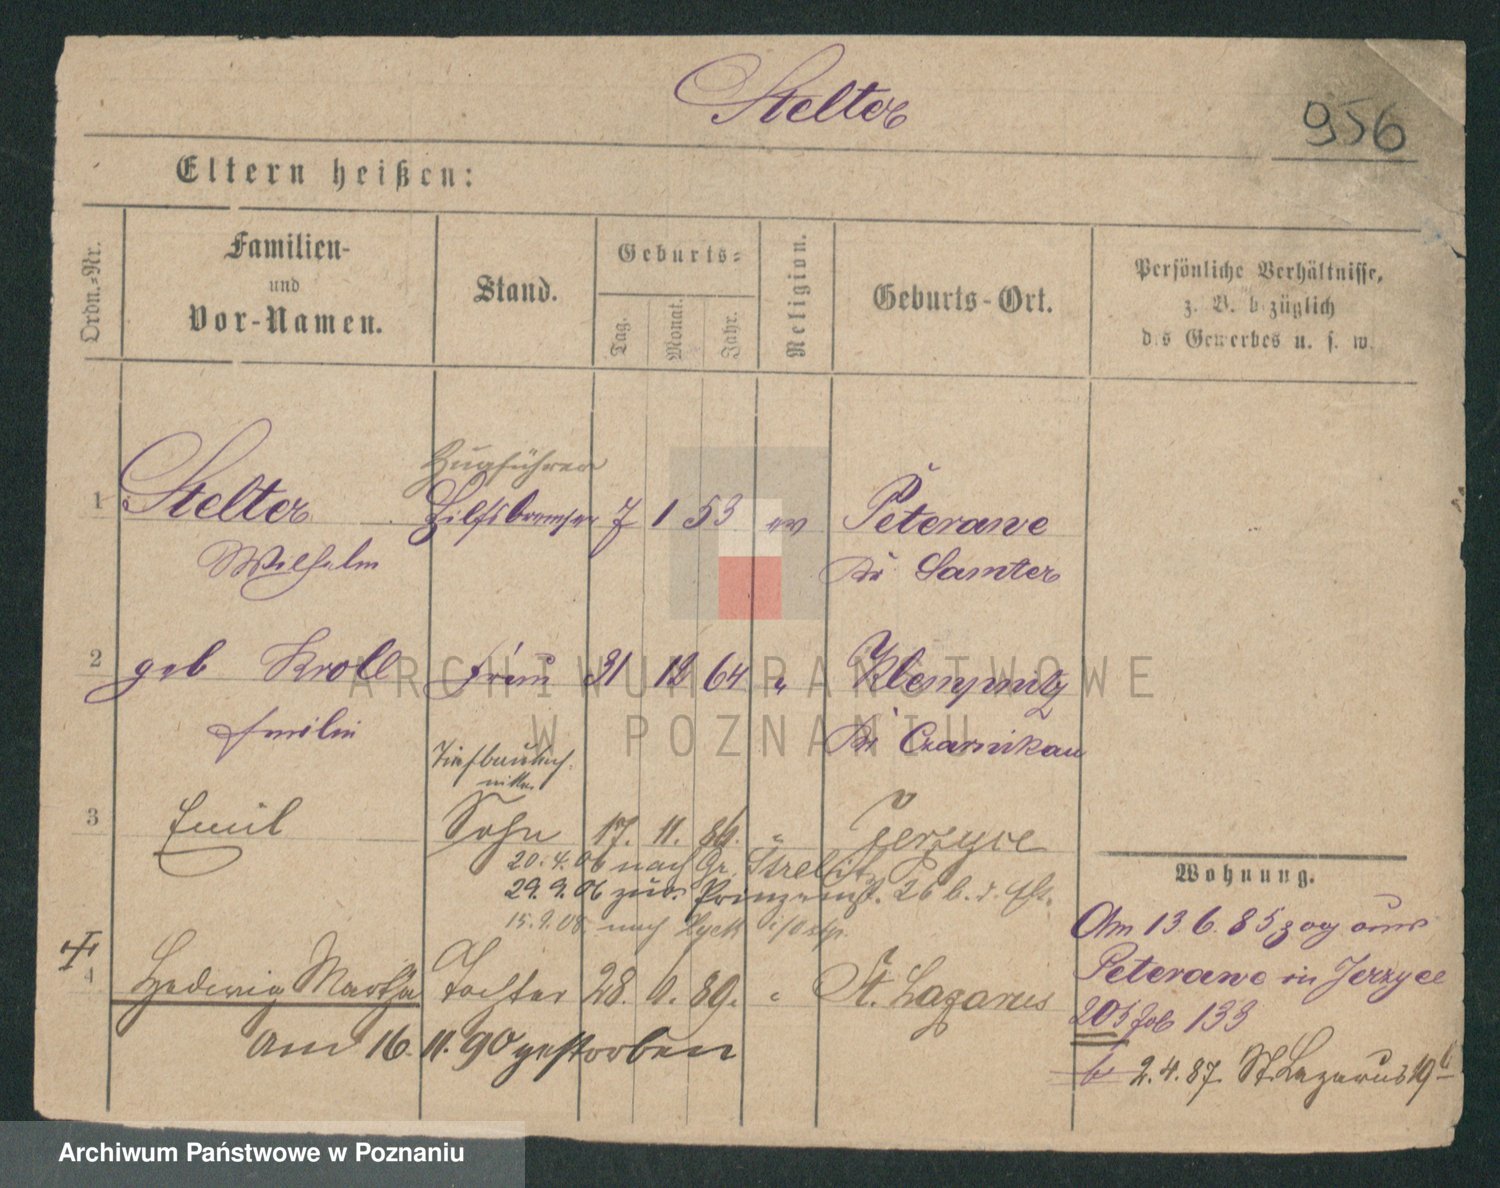 Stelter
956
Eltern heißen:
Ordn.-Nr.
Familien-
und
Vor-Namen.
Stand.
Geburts-
Tag.
Monat.
Jahr.
Religion.
Geburts-Ort.
Persönliche Verhältnisse,
z. B. bezüglich
des Gewerbes u. s. w.
Zugführer
1 Stelter Hilfsbremser 7 1 53 ev Peterawe
Wilhelm Kr Samter
2 geb Kroll Frau 31 12 64 " Klempnitz
Emilie Kr Czarnikau
3 Emil Sohn 17. 11. 86. " Jerzyce
20.4.06 nach Gr. Strelitz
29.9.06 zur. Prinzenst. 26 b. d. Elt.
15.9.08. nach Lyck i/Ostp.
4 Hedwig Martha Tochter 28. 9. 89. " St. Lazarus
Am 16. 11. 90 gestorben
Wohnung.
Am 13 6. 85 zog aus
Peterawe in Jerzyce
205 Job 133
2.4.87. St. Lazarus 19
ARCHIWUM PAŃSTWOWE
W POZNANIU
Archiwum Państwowe w Poznaniu